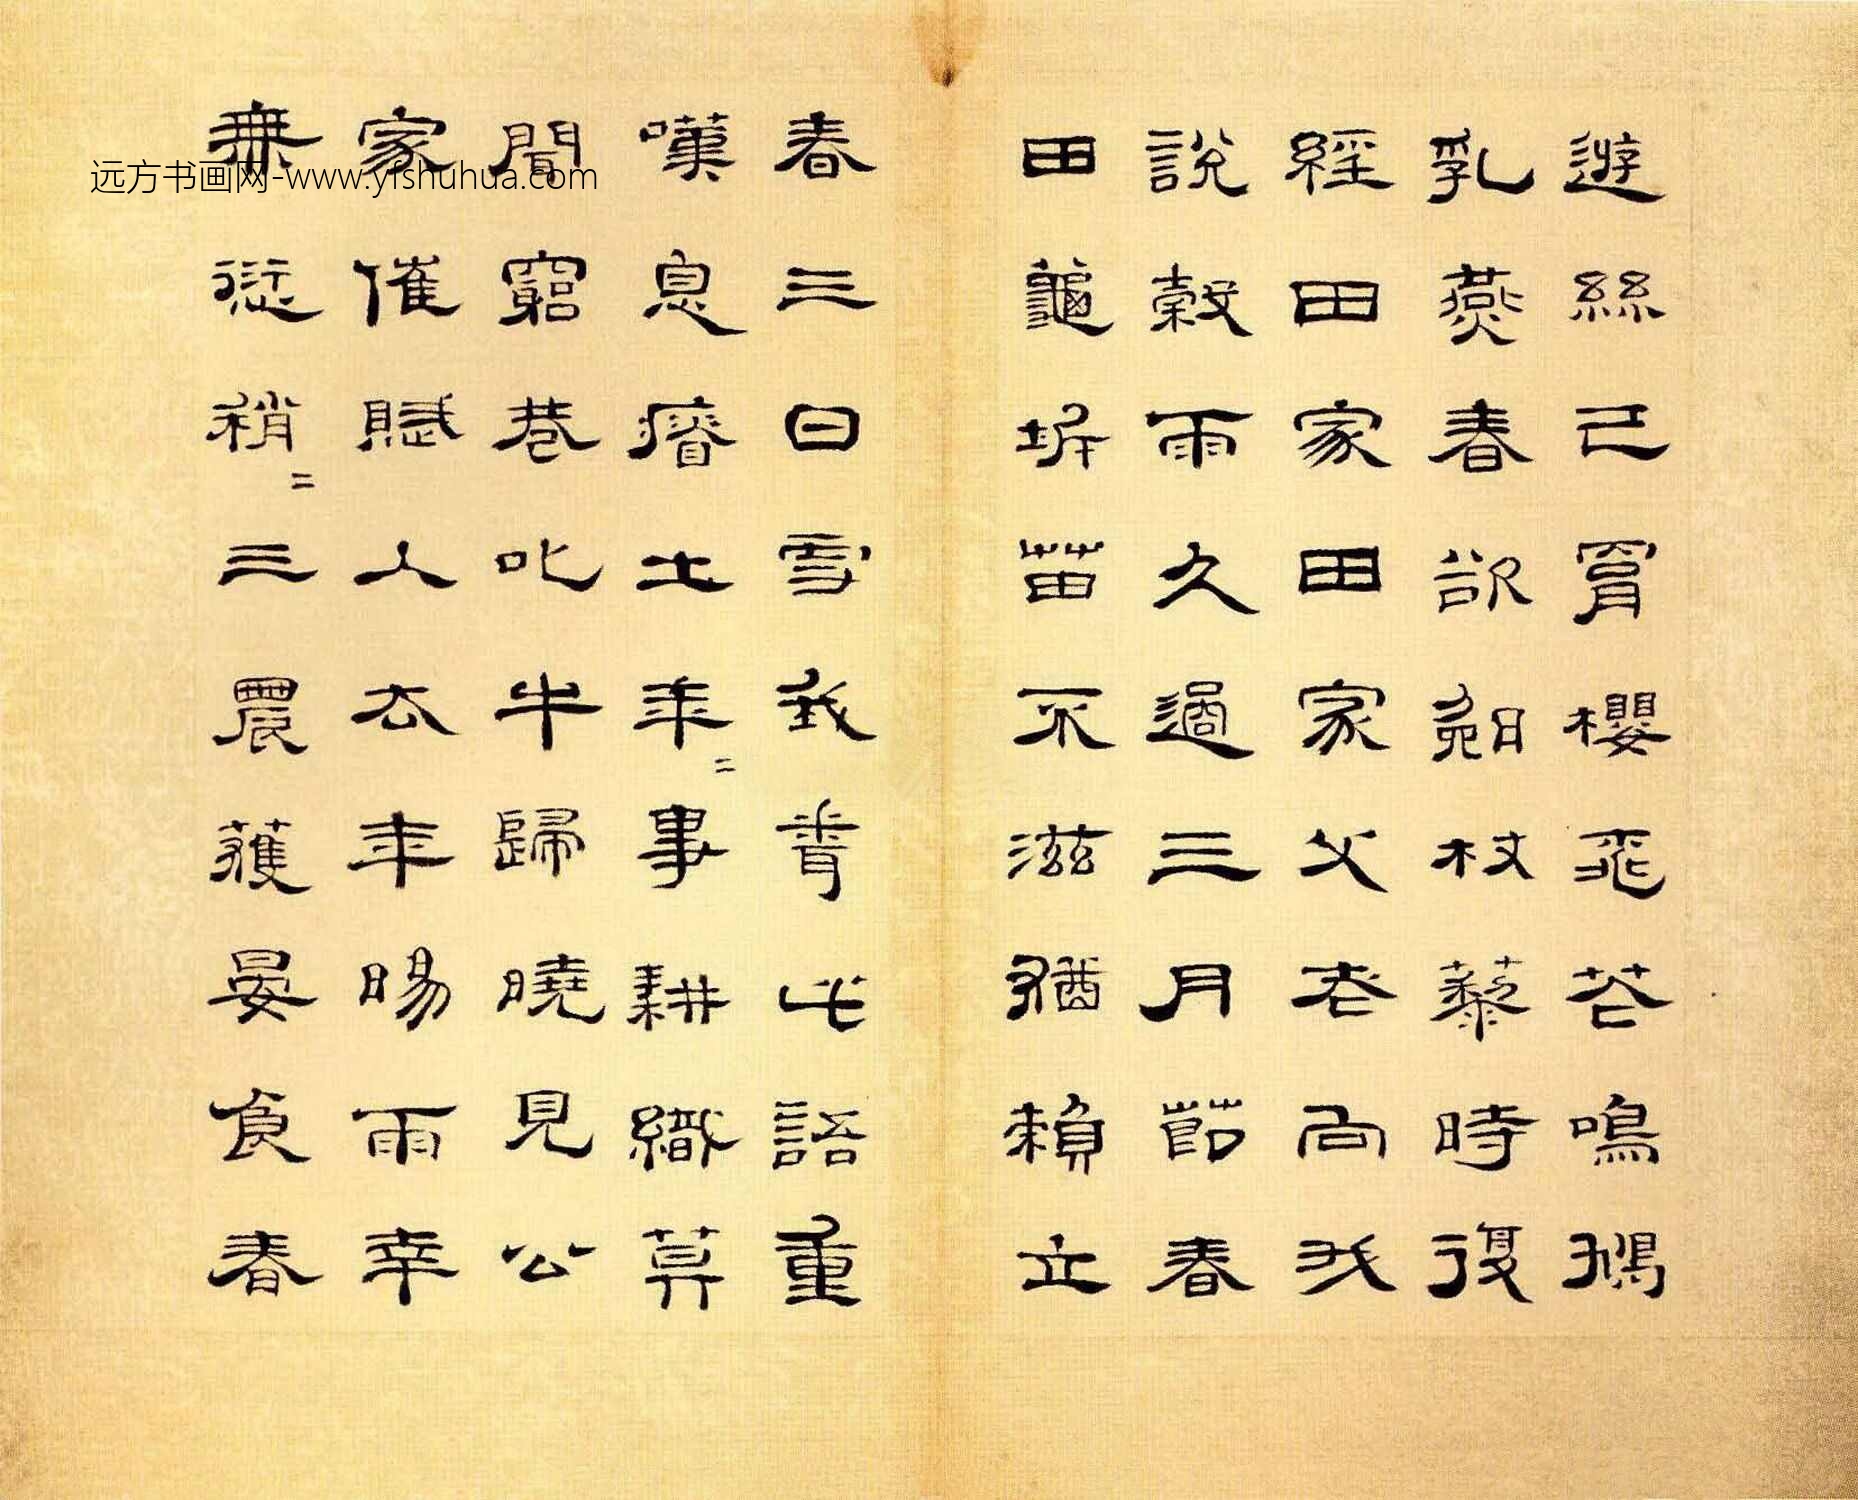 远方书画网-www.yfshuhua.com
遊絲已罥櫻飛花鳴鳩
乳燕春欲晚杖藜時復
經田家田家父老向我
說穀雨久過三月節春
田龜坼苗不滋猶賴立
春三日雪我此語重
嘆息瘠土年〻事耕織莫
聞窮巷叱牛歸曉見公
家催賦人去年暘雨幸
無愆稍〻三農獲晏食春